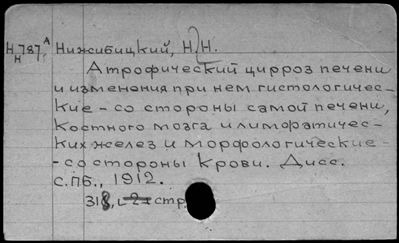 Н 787 А Нижибицкий, Н. Н.
Н
Атрофический цирроз печени
и изменения при нем гистологичес-
кие - со стороны самой печени,
костного мозга и лимфатичес-
ких желез и морфологические -
- со стороны крови. Дисс.
С.ПБ., 1912.
318, стр.